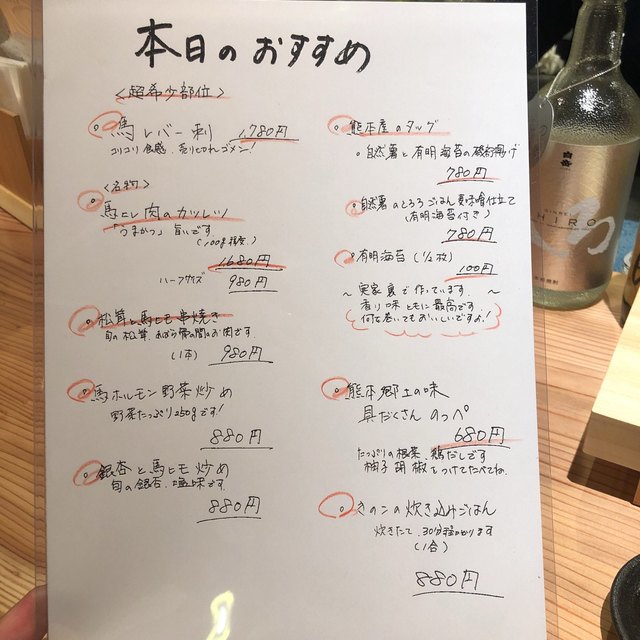 本日のおすすめ
<超希少部位>
馬レバー刺 1,780円
コリコリ食感、売り切れゴメン!
<名物>
馬ヒレ肉のカツレツ
「うまかつ」旨いです
(100g程度)
1,680円
ハーフサイズ 980円
松茸と馬ヒモ串焼き
旬の松茸、あばら骨の間のお肉です
(1本) 980円
馬ホルモン野菜炒め
野菜たっぷり250gです!
880円
銀杏と馬ヒモ炒め
旬の銀杏、塩味です
880円
熊本産のタッグ
自然薯と有明海苔の磯部揚げ
780円
自然薯のとろろごはん麦味噌仕立て
(有明海苔付き)
780円
有明海苔(1/2枚)
100円
~実家裏で作っています~
香り味ともに最高です
何を巻いてもおいしいですよ!
熊本郷土の味
具だくさんのっぺ
680円
たっぷりの根菜、鶏だしです
柚子胡椒をつけてたべてね
きのこの炊き込みごはん
炊きたて、30分程かかります
(1合)
880円
白岳
GINREI
SHIRO
本格焼酎